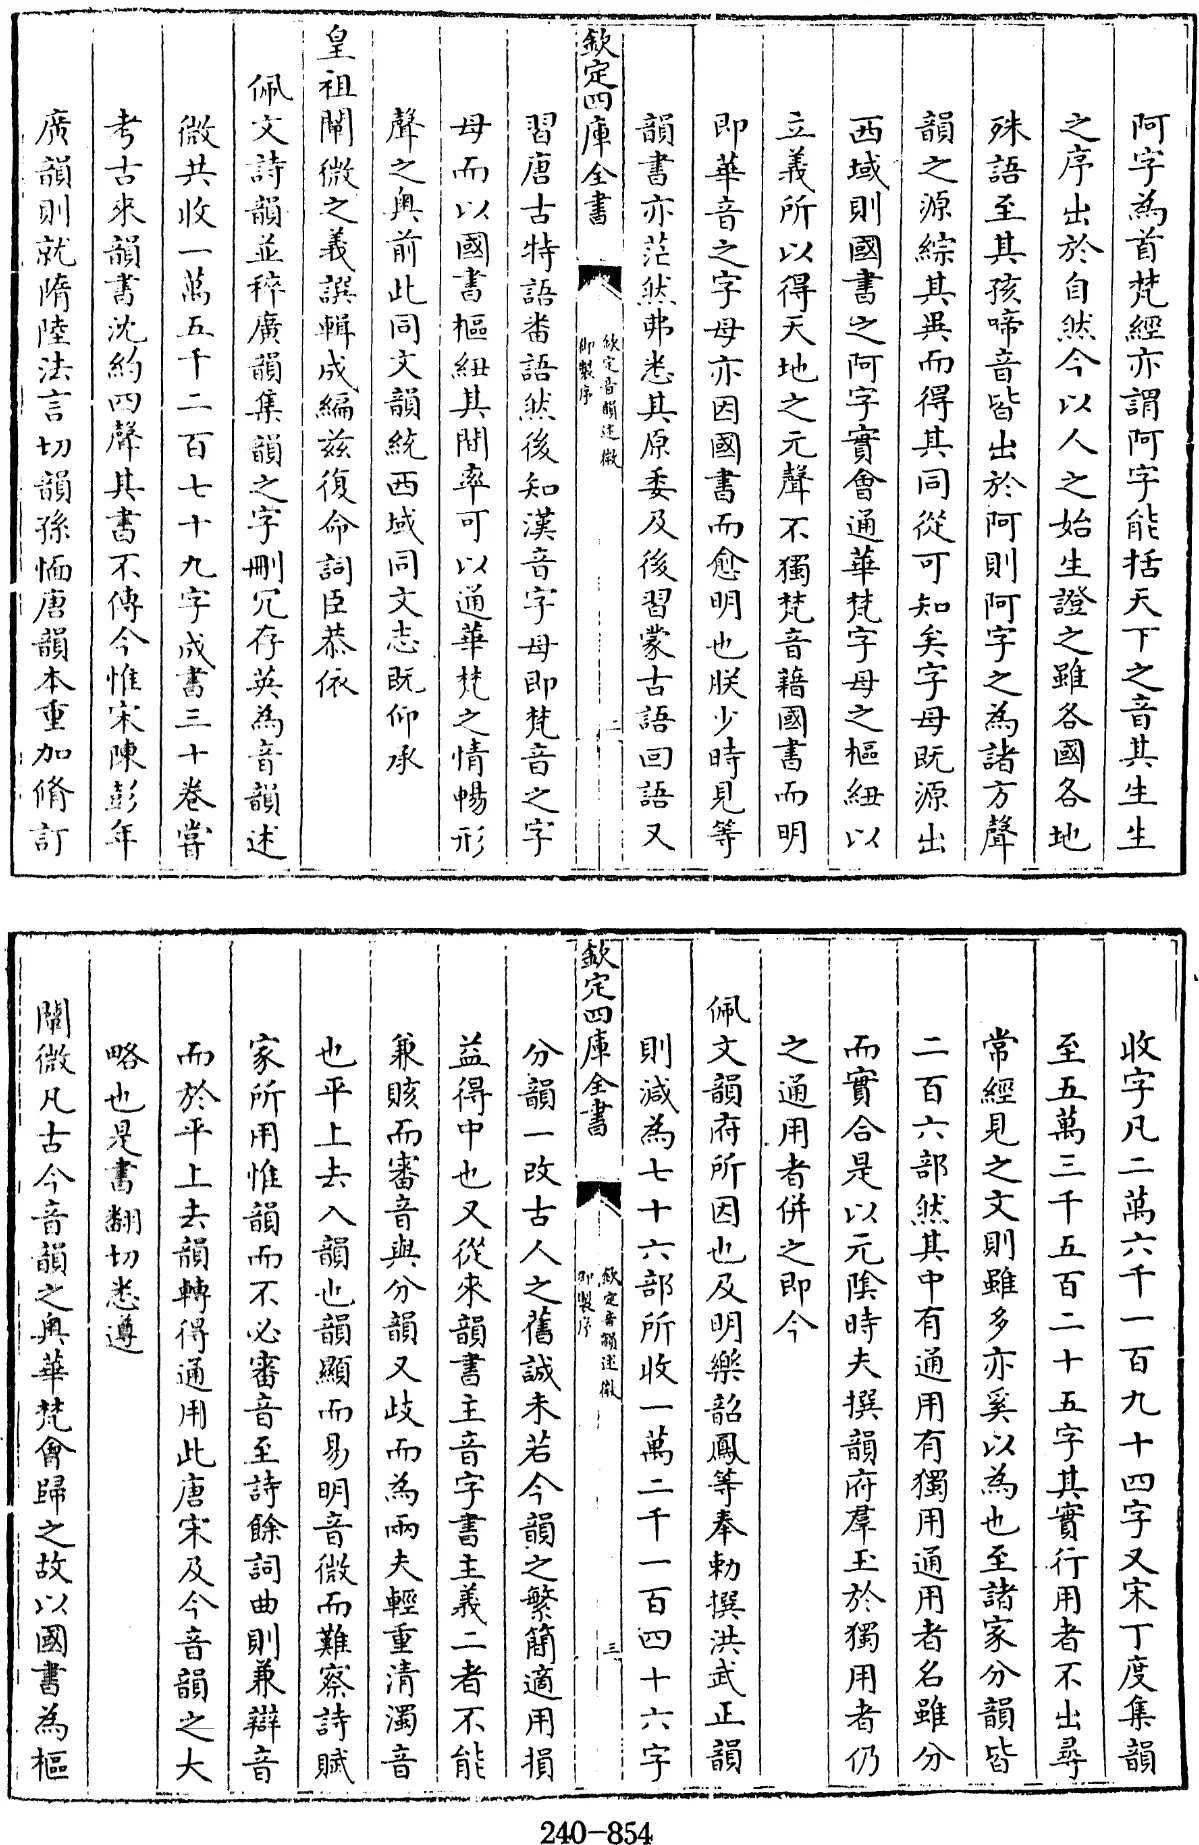 阿字為首梵經亦謂阿字能括天下之音其生生
之序出於自然今以人之始生證之雖各國各地
殊語至其孩啼音皆出於阿則阿字之為諸方聲
韻之源綜其異而得其同從可知矣字母既源出
西域則國書之阿字實會通華梵字母之樞紐以
立義所以得天地之元聲不獨梵音藉國書而明
即華音之字母亦因國書而愈明也朕少時見等
韻書亦茫然弗悉其原委及後習蒙古語回語又
欽定四庫全書
欽定音韻述微
御製序
二
習唐古特語畨語然後知漢音字母即梵音之字
母而以國書樞紐其間率可以通華梵之情暢形
聲之奥前此同文韻統西域同文志既仰承
皇祖闡微之義譔輯成編兹復命詞臣恭依
佩文詩韻並稡廣韻集韻之字刪冗存英為音韻述
微共收一萬五千二百七十九字成書三十卷嘗
考古來韻書沈約四聲其書不傳今惟宋陳彭年
廣韻則就隋陸法言切韻孫愐唐韻本重加脩訂
收字凡二萬六千一百九十四字又宋丁度集韻
至五萬三千五百二十五字其實行用者不出尋
常經見之文則雖多亦奚以為也至諸家分韻皆
二百六部然其中有通用有獨用通用者名雖分
而實合是以元陰時夫撰韻府羣玉於獨用者仍
之通用者併之即今
佩文韻府所因也及明樂韶鳳等奉勅撰洪武正韻
則減為七十六部所收一萬二千一百四十六字
欽定四庫全書
欽定音韻述微
御製序
三
分韻一改古人之舊誠未若今韻之繁簡適用損
益得中也又從來韻書主音字書主義二者不能
兼賅而審音與分韻又歧而為兩夫輕重清濁音
也平上去入韻也韻顯而易明音微而難察詩賦
家所用惟韻而不必審音至詩餘詞曲則兼辯音
而於平上去韻轉得通用此唐宋及今音韻之大
略也是書翻切悉遵
闡微凡古今音韻之奥華梵會歸之故以國書為樞
240-854